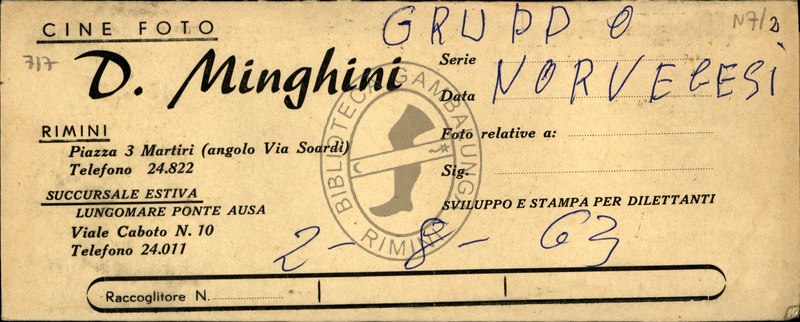 CINE FOTO
717
D. Minghini
RIMINI
Piazza 3 Martiri (angolo Via Soardi)
Telefono 24.822
SUCCURSALE ESTIVA
LUNGOMARE PONTE AUSA
Viale Caboto N. 10
Telefono 24.011
GRUPPO
N7/2
Serie
NORVEGESI
Data
Foto relative a:
Sig.
SVILUPPO E STAMPA PER DILETTANTI
2-8-63
BIBLIOTECA GAMBALUNGA
RIMINI
Raccoglitore N.